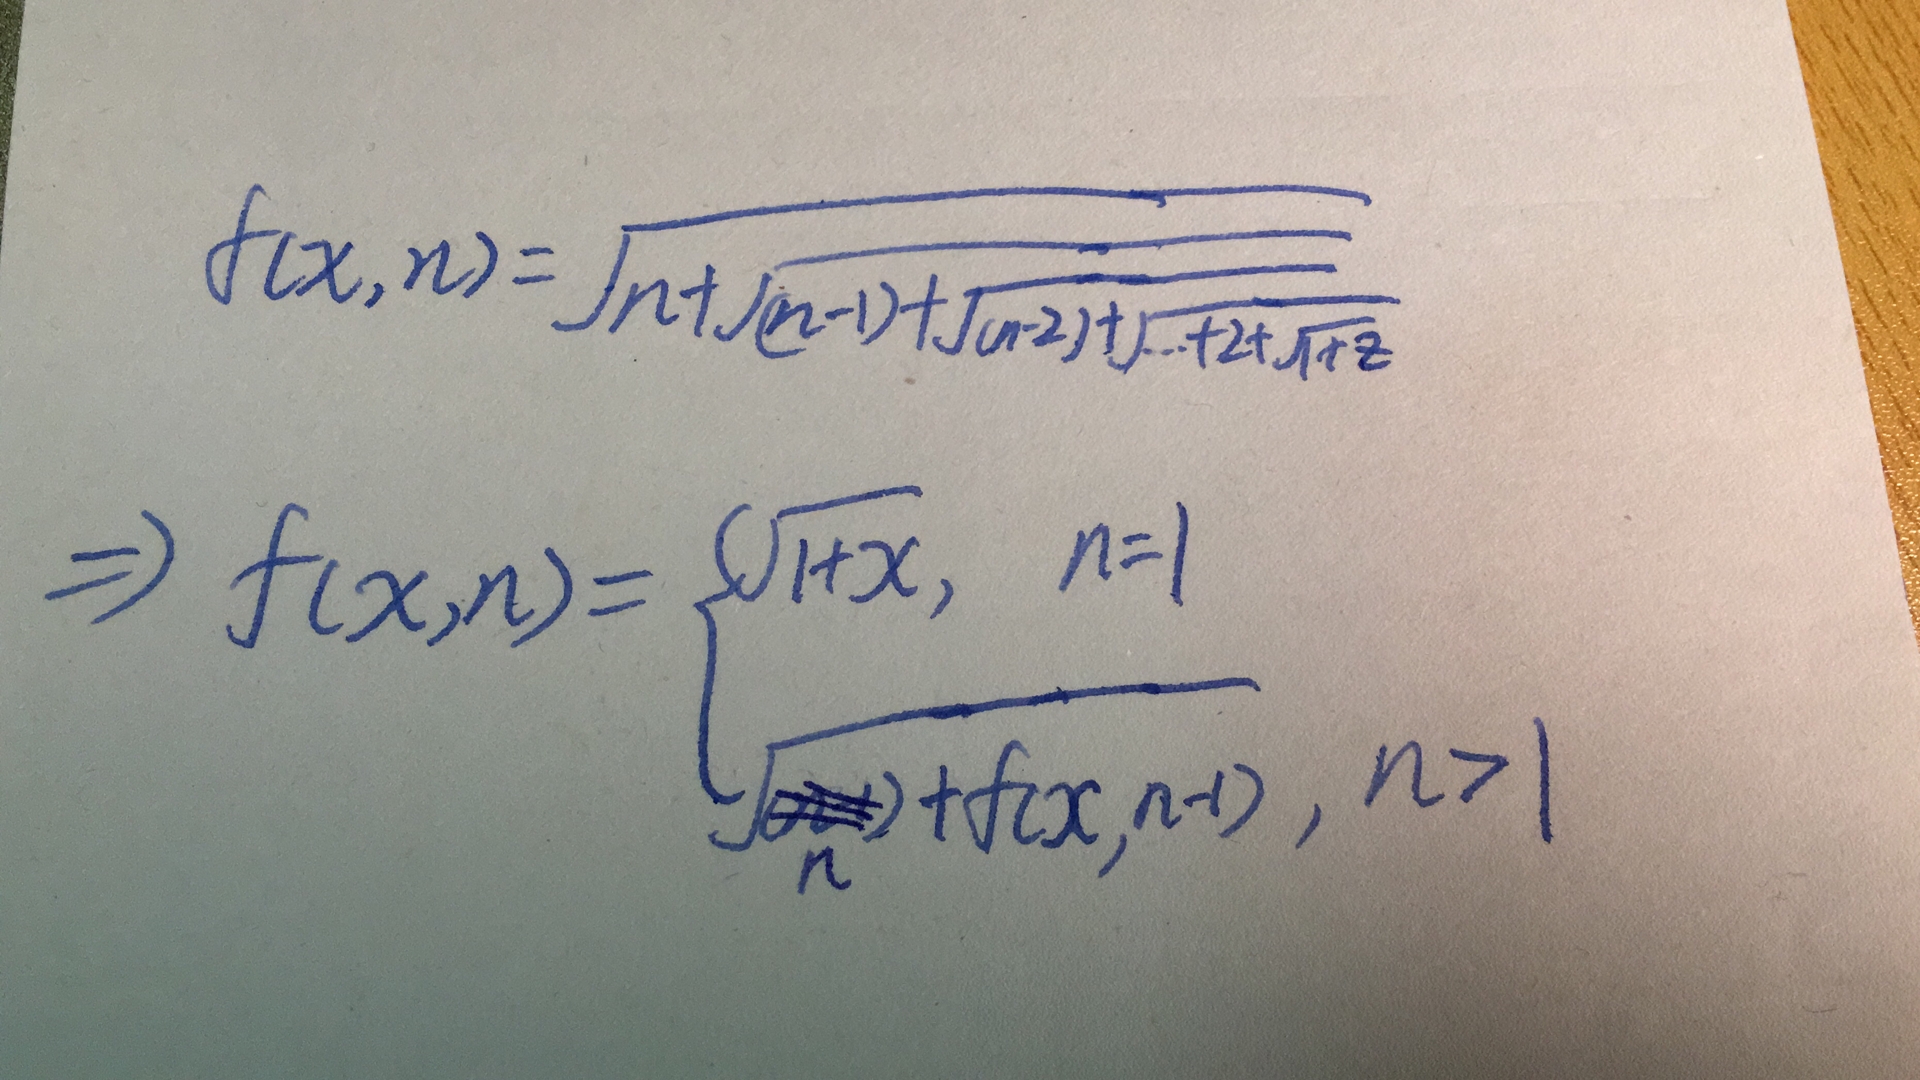 f(x,n)=√(n+√((n-1)+√((n-2)+√(...+2+√(1+z)))))
⇒ f(x,n)={√(1+x), n=1
√(n+f(x,n-1)), n>1